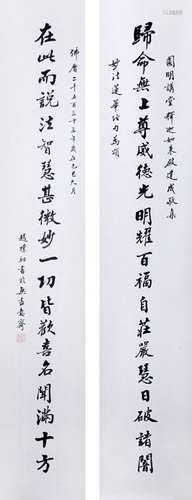 圓明講堂釋迦如來殿建成敬集
歸命無上尊威德光明耀百福自莊嚴慧日破諸闇
妙法蓮華經句為頌
佛曆二千五百三十三年歲在己巳六月
在此而說法智慧甚微妙一切皆歡喜名聞滿十方
趙樸初書於無盡意齋